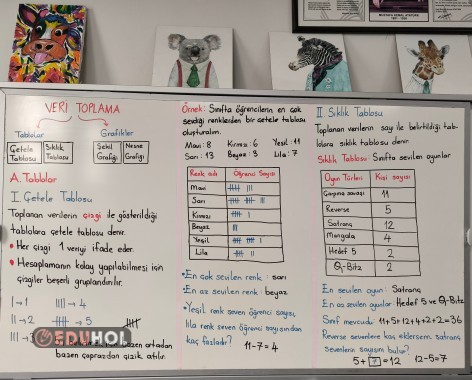 VERİ TOPLAMA
Tablolar
Grafikler
Çetele Tablosu
Sıklık Tablosu
Şekil Grafiği
Nesne Grafiği
A. Tablolar
I. Çetele Tablosu
Toplanan verilerin çizgi ile gösterildiği
tablolara çetele tablosu denir.
• Her çizgi 1 veriyi ifade eder.
• Hesaplamanın kolay yapılabilmesi için
çizgiler beşerli gruplandırılır.
I → 1
IIII → 4
II → 2
→ 5
III → 3
bazen ortadan
bazen çaprazdan çizik atılır.
EDUHOL
Örnek: Sınıfta öğrencilerin en çok
sevdiği renklerden bir çetele tablosu
oluşturalım.
Mavi: 8 Kırmızı: 6 Yeşil: 11
Sarı: 13 Beyaz: 3 Lila: 7
Renk adı Öğrenci Sayısı
Mavi
Sarı
Kırmızı
Beyaz
Yeşil
Lila
• En çok sevilen renk: sarı
• En az sevilen renk: beyaz
• Yeşil renk seven öğrenci sayısı,
lila renk seven öğrenci sayısından
kaç fazladır? 11-7=4
II. Sıklık Tablosu
Toplanan verilerin sayı ile belirtildiği tab-
lolara sıklık tablosu denir.
Sıklık Tablosu: Sınıfta sevilen oyunlar
Oyun Türleri Kişi sayısı
Çarpma savaşı 11
Reverse 5
Satranç 12
Mangala 4
Hedef 5 2
Q-Bitz 2
En sevilen oyun: Satranç
En az sevilen oyunlar: Hedef 5 ve Q-Bitz
Sınıf mevcudu: 11+5+12+4+2+2=36
Reverse sevenlere kaç eklersem satranç
sevenlerin sayısını bulur?
5+7=12 12-5=7